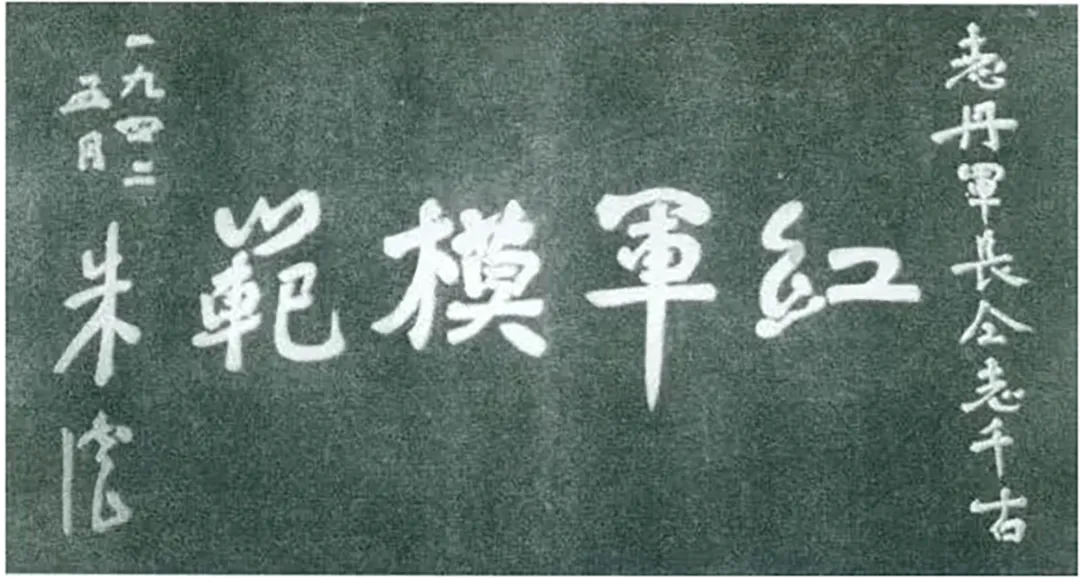 志丹軍長仝志千古
紅軍模範
一九四二
五月
朱德